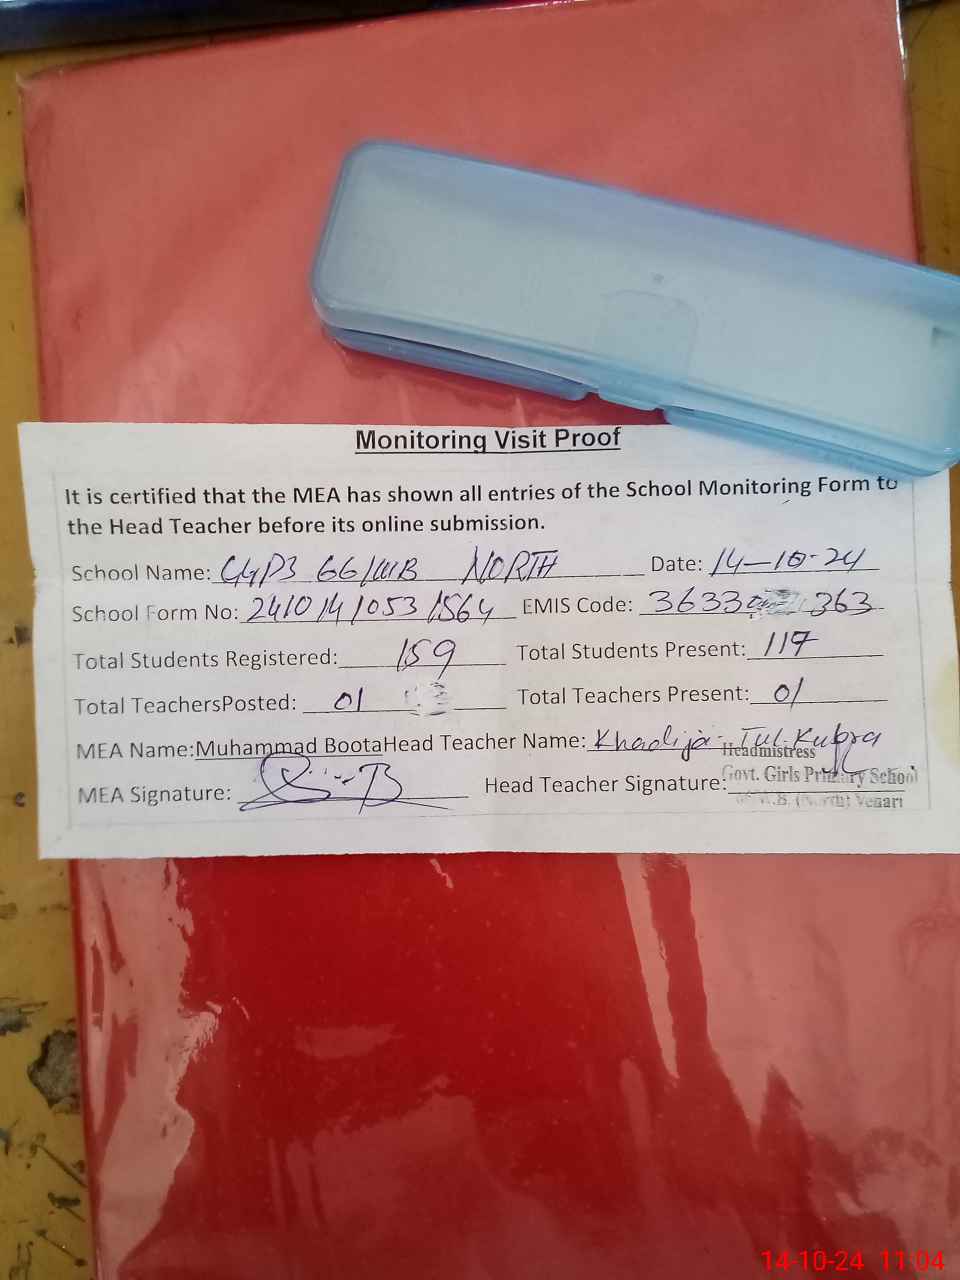 Monitoring Visit Proof
It is certified that the MEA has shown all entries of the School Monitoring Form to
the Head Teacher before its online submission.
School Name: GGPS 66/WB NORTH Date: 14-10-24
School Form No: 24101410531564 EMIS Code: 36330 363
Total Students Registered: 159 Total Students Present: 117
Total TeachersPosted: 01 Total Teachers Present: 01
MEA Name:Muhammad BootaHead Teacher Name: Khadija-Tul-Kubra
Headmistress
MEA Signature: Head Teacher Signature: Govt. Girls Primary School
W.B. (North) Vehari
14-10-24 11:04